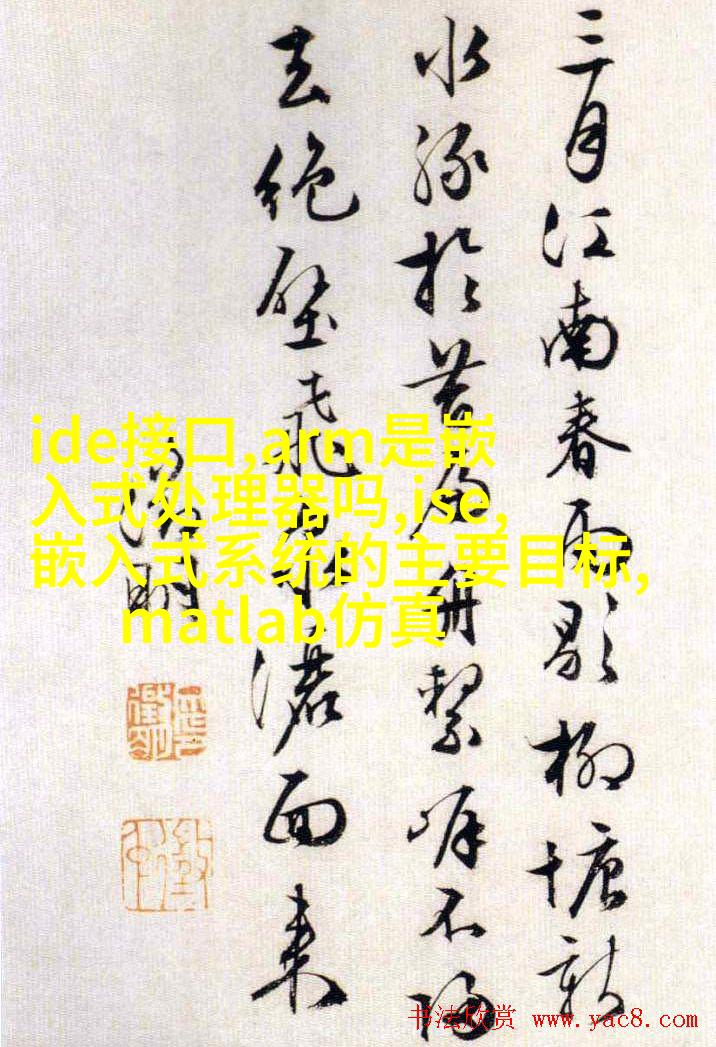 三月江南春雨歇柳塘新
水緑於苔扁舟繫岸不歸
去絶壁飛泉灑面来
徵明
ide接口,arm是嵌
入式处理器吗,ise,
嵌入式系统的主要目标,
matlab仿真
书法欣赏 www.yac8.com